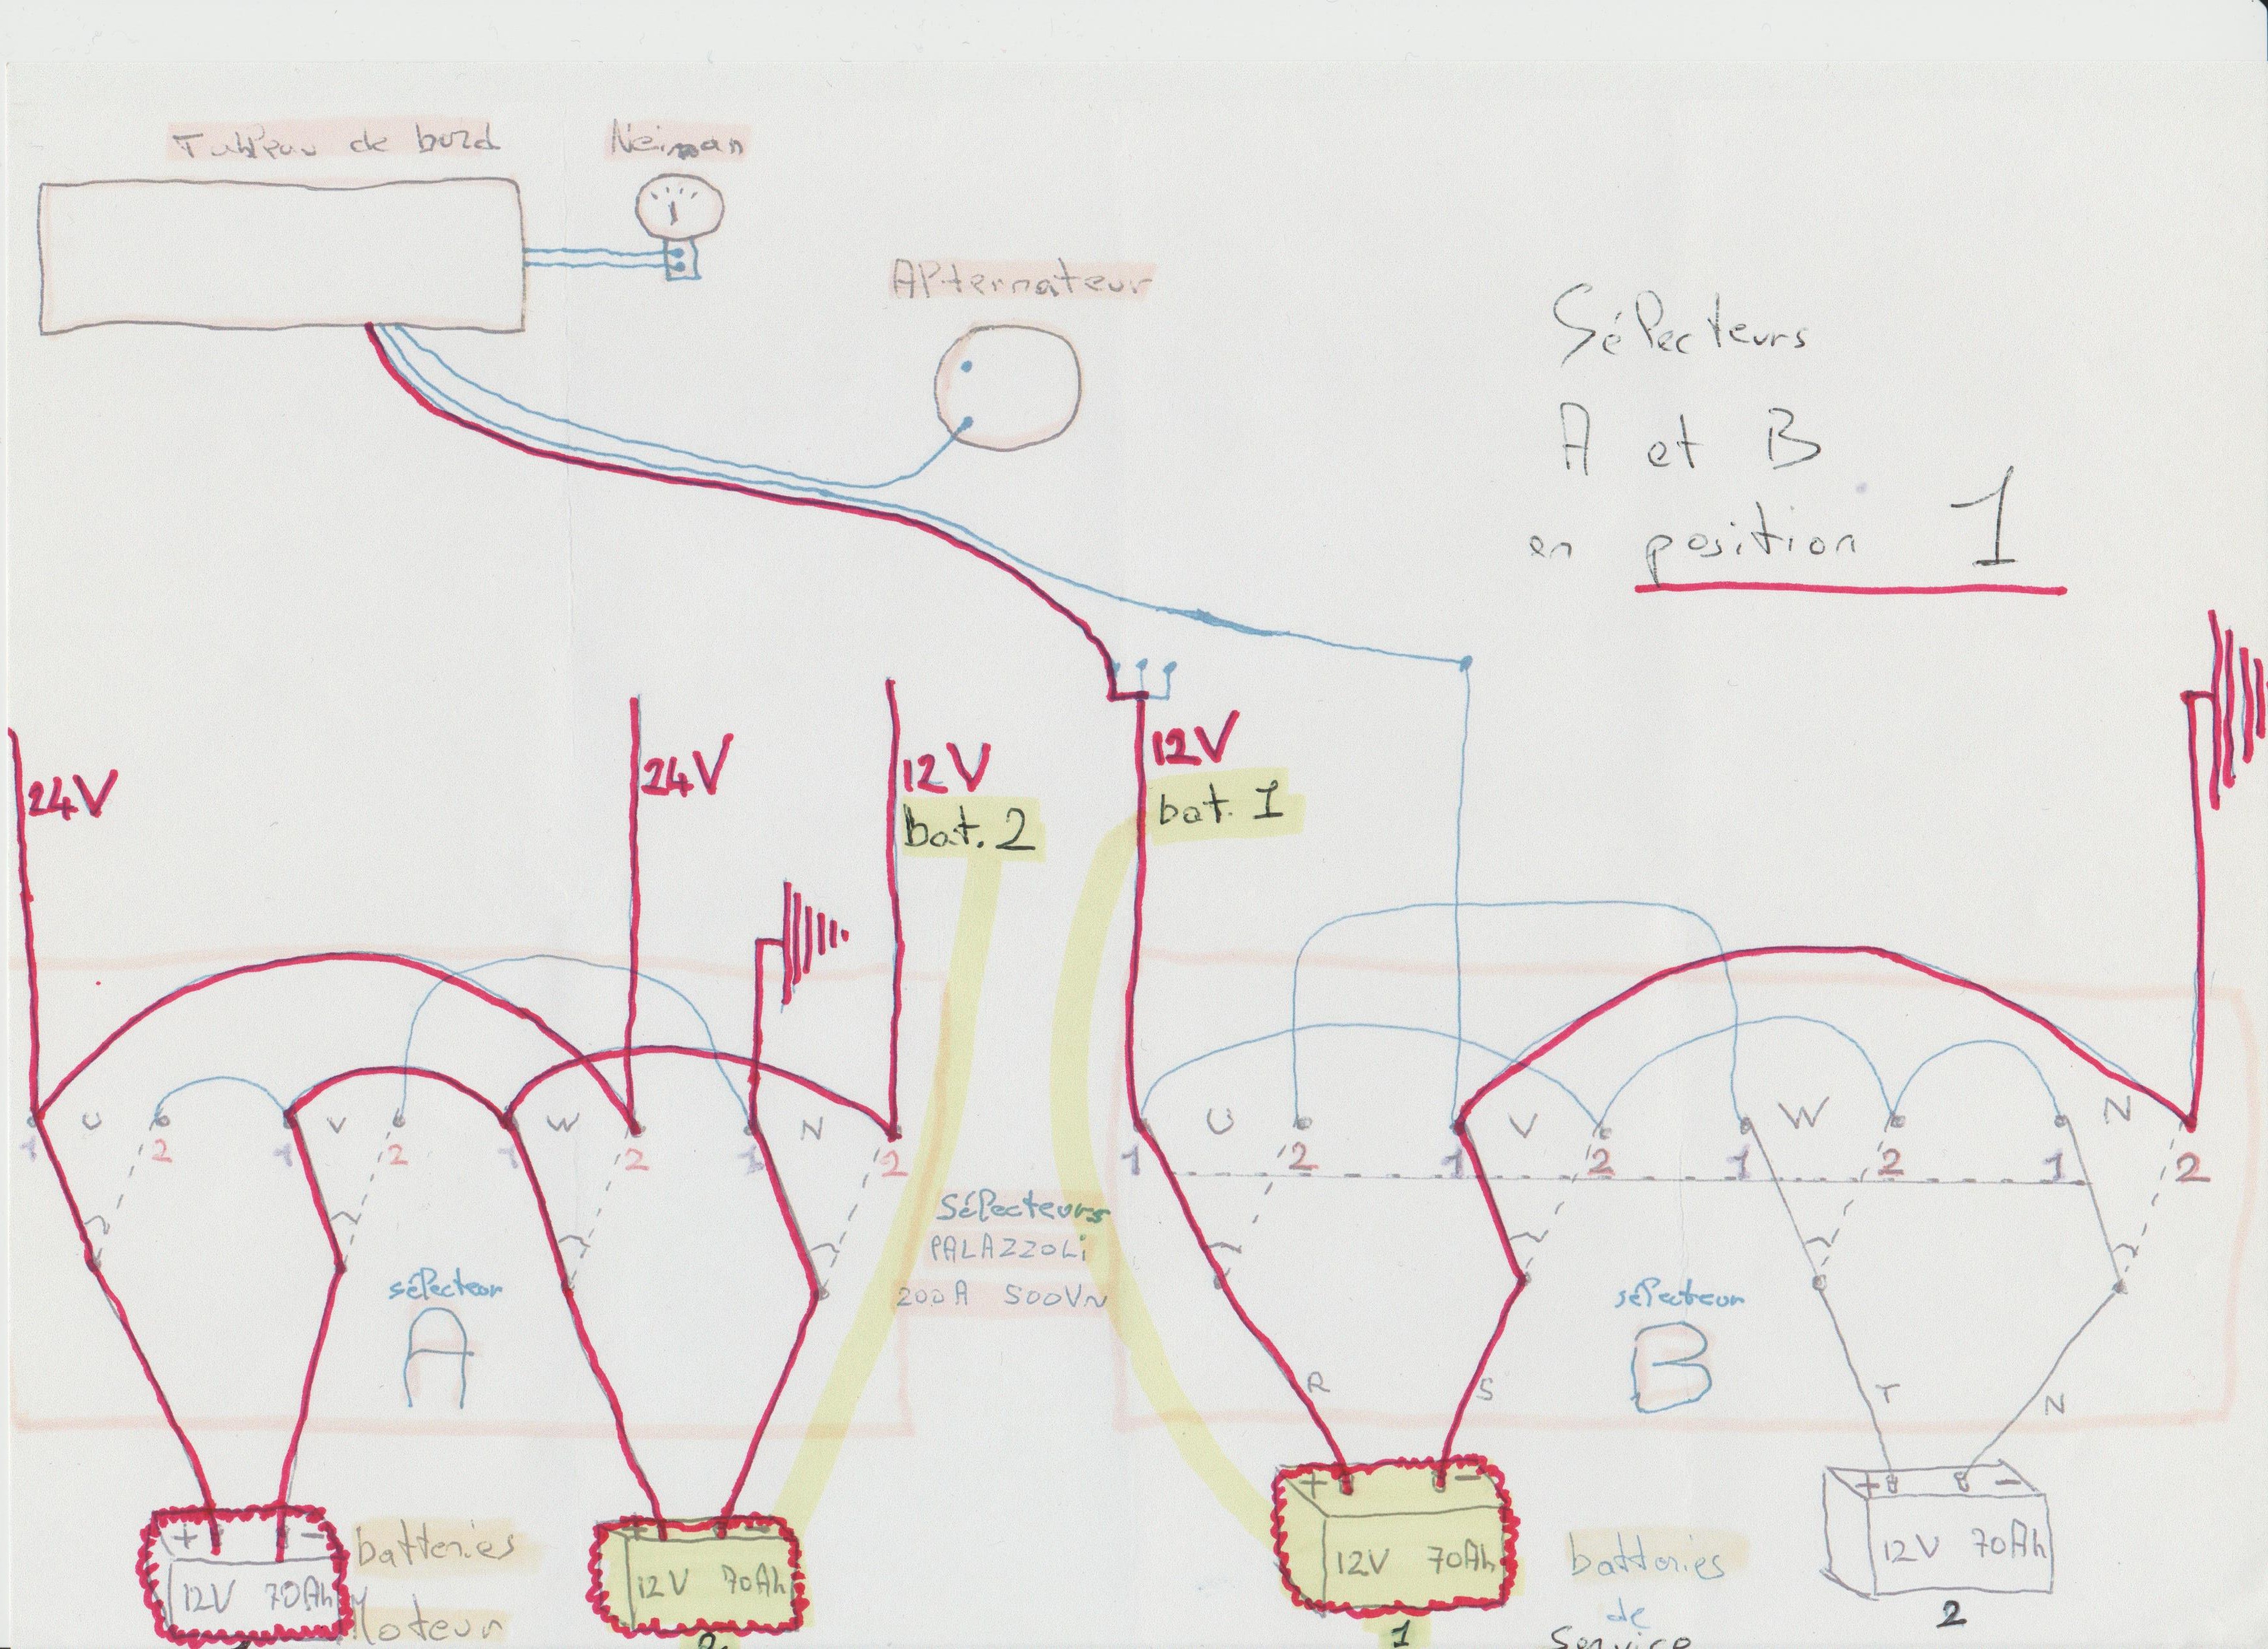 Tableau de bord
Neiman
Alternateur
Sélecteurs
A et B
en position 1
24V
24V
12V
bat. 2
12V
bat. 1
U
V
W
N
1
2
1
2
1
2
1
2
U
V
W
N
1
2
1
2
1
2
1
2
Sélecteurs
PALAZZOLi
200A 500Vn
sélecteur
A
sélecteur
B
R
S
T
N
+ -
12V 70Ah
batteries
Moteur
+ -
12V 70Ah
2
+ -
12V 70Ah
1
batteries
de
Service
+ -
12V 70Ah
2